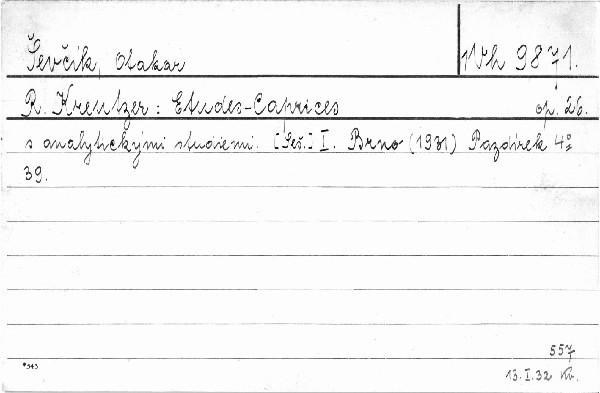 Ševčík, Otakar
IVh 9871.
R. Kreutzer: Etudes-Caprices op. 26.
s analytickými studiemi. [Seš.] I. Brno (1931) Pazdírek 4°
39.
557
*543
13.I.32 Kv.